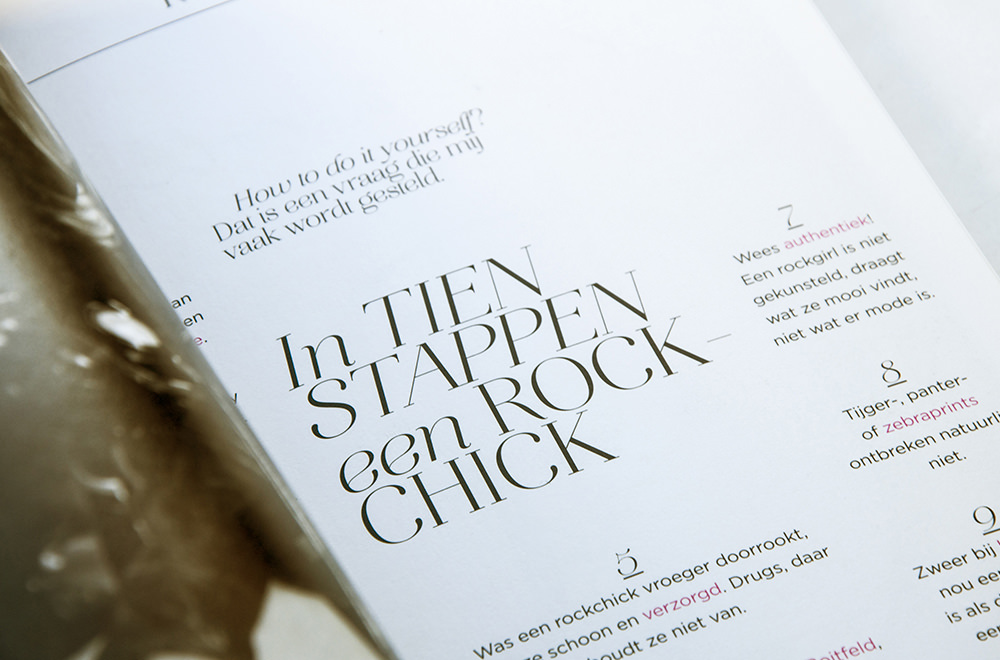 How to do it yourself?
Dat is een vraag die mij
vaak wordt gesteld.
In TIEN
STAPPEN
een ROCK-
CHICK
an
en
e.
5
Was een rockchick vroeger doorrookt,
ze schoon en verzorgd. Drugs, daar
houdt ze niet van.
7
Wees authentiek!
Een rockgirl is niet
gekunsteld, draagt
wat ze mooi vindt,
niet wat er mode is.
8
Tijger-, panter-
of zebraprints
ontbreken natuurli
niet.
9
Zweer bij
nou eer
is als d
eer